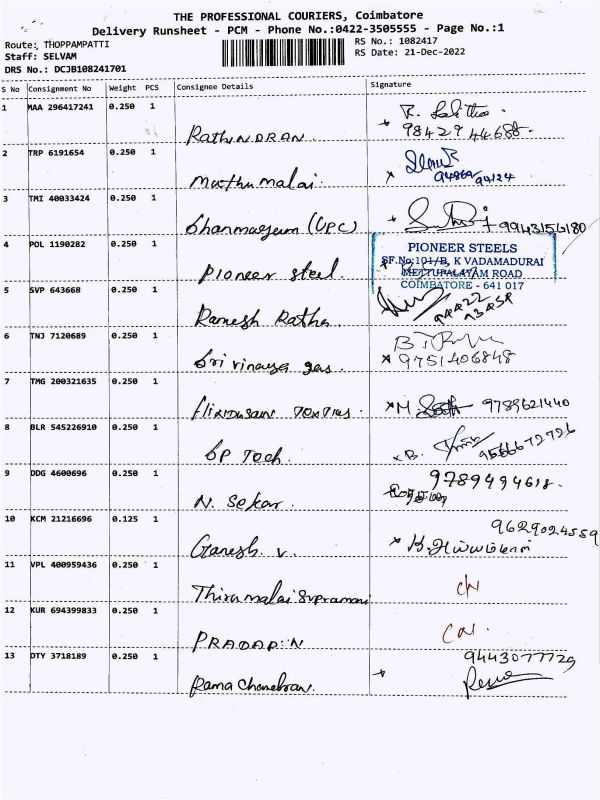 THE PROFESSIONAL COURIERS, Coimbatore
Delivery Runsheet - PCM - Phone No.:0422-3505555 - Page No.:1
Route: THOPPAMPATTI RS No.: 1082417
Staff: SELVAM RS Date: 21-Dec-2022
DRS No.: DCJB108241701
S No Consignment No Weight PCS Consignee Details Signature
1 MAA 296417241 0.250 1
Rathindran 98429 44688
2 TRP 6191654 0.250 1
Muthu malai 94869 94124
3 TMI 40033424 0.250 1
Shanmugam (UPC) 9943156180
4 POL 1190282 0.250 1
PIONEER STEELS
SF.No:101/B, K VADAMADURAI
METTUPALAYAM ROAD
COIMBATORE - 641 017
Pioneer steel.
5 SVP 643668 0.250 1
Ramesh Rathna
6 TNJ 7120689 0.250 1
Sri vinayaga gas. 9751406848
7 TMG 200321635 0.250 1
Textiles M. 9789621440
8 BLR 545226910 0.250 1
SP Tech. B. 9566672726
9 DDG 4600696 0.250 1
N. Sekar 9789494618.
10 KCM 21216696 0.125 1
9629024559
Ganesh. V.
11 VPL 400959436 0.250 1
Thirumalai Supramani
12 KUR 694399833 0.250 1
PRADAP.N
13 DTY 3718189 0.250 1
9443077729
Rama Chandran.